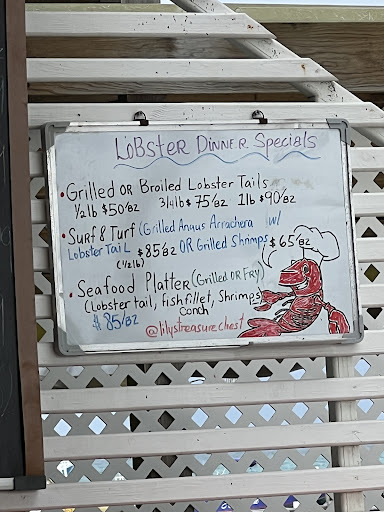 LOBSTER DINNER Specials
• Grilled OR Broiled Lobster Tails
1/2lb $50/BZ 3/4lb $75/BZ 1lb $90/BZ
• Surf & Turf (Grilled Angus Arrachera W/
Lobster Tail $85/BZ OR Grilled Shrimps $65/BZ
(1/2lb)
• Seafood Platter (Grilled OR Fry)
(Lobster tail, fish fillet, Shrimps)
Conch
$85/BZ
@lilystreasurechest